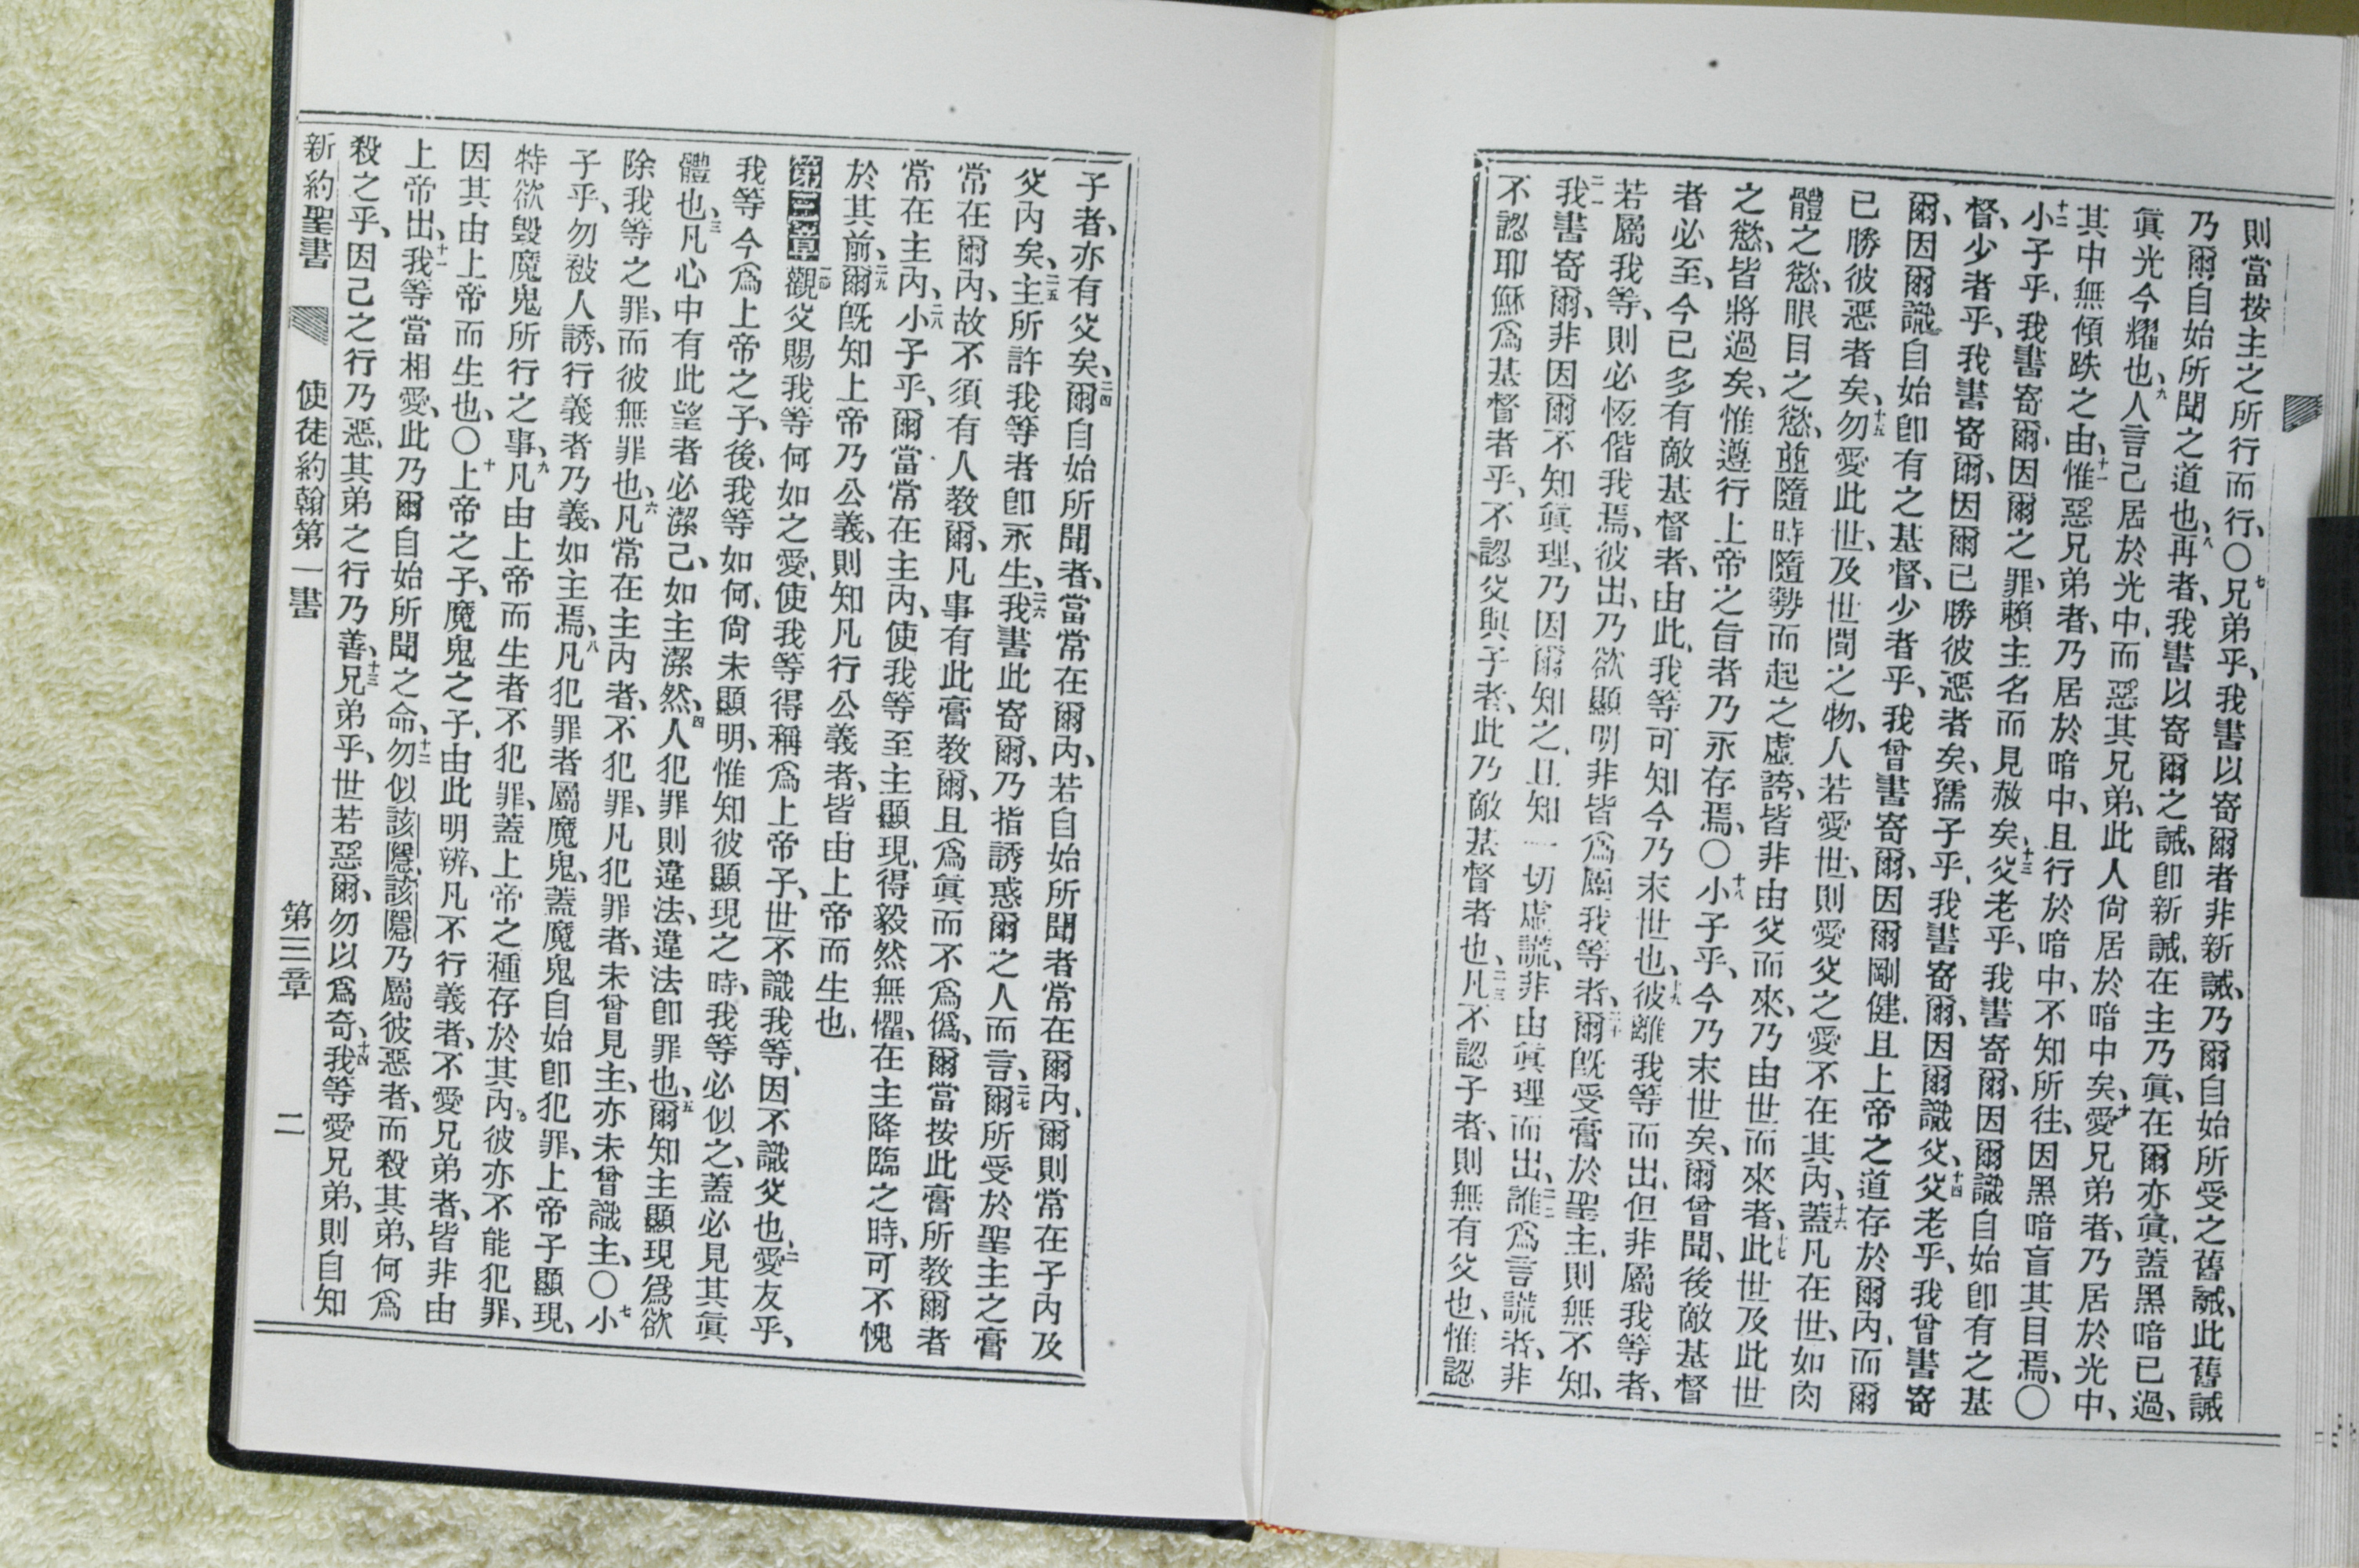 則當按主之所行而行、〇七兄弟乎、我書以寄爾者非新誡、乃爾自始所受之舊誡、此舊誡
乃爾自始所聞之道也、八再者、我書以寄爾之誡、卽新誡、在主乃眞、在爾亦眞、蓋黑暗已過、
眞光今耀也、九人言己居於光中、而惡其兄弟、此人尙居於暗中矣、十愛兄弟者、乃居於光中、
其中無傾跌之由、十一惟惡兄弟者、乃居於暗中、且行於暗中、不知所往、因黑暗盲其目焉、〇
十二小子乎、我書寄爾、因爾之罪、賴主名而見赦矣、十三父老乎、我書寄爾、因爾識自始卽有之基
督、少者乎、我書寄爾、因爾已勝彼惡者矣、孺子乎、我書寄爾、因爾識父、十四父老乎、我曾書寄
爾、因爾識自始卽有之基督、少者乎、我曾書寄爾、因爾剛健、且上帝之道存於爾內、而爾
已勝彼惡者矣、十五勿愛此世、及世間之物、人若愛世、則愛父之愛不在其內、十六蓋凡在世、如肉
體之慾、眼目之慾、並隨時隨勢而起之虛誇、皆非由父而來、乃由世而來者、十七此世及此世
之慾、皆將過矣、惟遵行上帝之旨者乃永存焉、〇十八小子乎、今乃末世矣、爾曾聞、後敵基督
者必至、今已多有敵基督者、由此、我等可知今乃末世也、十九彼離我等而出、但非屬我等者、
若屬我等、則必恆偕我焉、彼出、乃欲顯明非皆爲屬我等者、二十爾旣受膏於聖主、則無不知、
二一我書寄爾、非因爾不知眞理、乃因爾知之、且知一切虛謊、非由眞理而出、二二誰爲言謊者、非
不認耶穌爲基督者乎、不認父與子者、此乃敵基督者也、二三凡不認子者、則無有父也、惟認
子者、亦有父矣、二四爾自始所聞者、當常在爾內、若自始所聞者常在爾內、爾則常在子內及
父內矣、二五主所許我等者卽永生、二六我書此寄爾、乃指誘惑爾之人而言、二七爾所受於聖主之膏
常在爾內、故不須有人教爾、凡事有此膏教爾、且爲眞而不爲僞、爾當按此膏所教爾者
常在主內、二八小子乎、爾當常在主內、使我等至主顯現、得毅然無懼、在主降臨之時、可不愧
於其前、二九爾旣知上帝乃公義、則知凡行公義者、皆由上帝而生也、
第三章 一節觀父賜我等何如之愛、使我等得稱爲上帝子、世不識我等、因不識父也、二愛友乎、
我等今爲上帝之子、後、我等如何、尙未顯明、惟知彼顯現之時、我等必似之、蓋必見其眞
體也、三凡心中有此望者必潔己、如主潔然、四人犯罪則違法、違法卽罪也、五爾知主顯現爲欲
除我等之罪、而彼無罪也、六凡常在主內者、不犯罪、凡犯罪者、未曾見主、亦未曾識主、〇七小
子乎、勿被人誘、行義者乃義、如主焉、八凡犯罪者屬魔鬼、蓋魔鬼自始卽犯罪、上帝子顯現、
特欲毀魔鬼所行之事、九凡由上帝而生者不犯罪、蓋上帝之種存於其內、彼亦不能犯罪、
因其由上帝而生也、〇十上帝之子、魔鬼之子、由此明辨、凡不行義者、不愛兄弟者、皆非由
上帝出、十一我等當相愛、此乃爾自始所聞之命、十二勿似該隱、該隱乃屬彼惡者、而殺其弟、何爲
殺之乎、因己之行乃惡、其弟之行乃善、十三兄弟乎、世若惡爾、勿以爲奇、十四我等愛兄弟、則自知
新約聖書 使徒約翰第一書 第三章 二